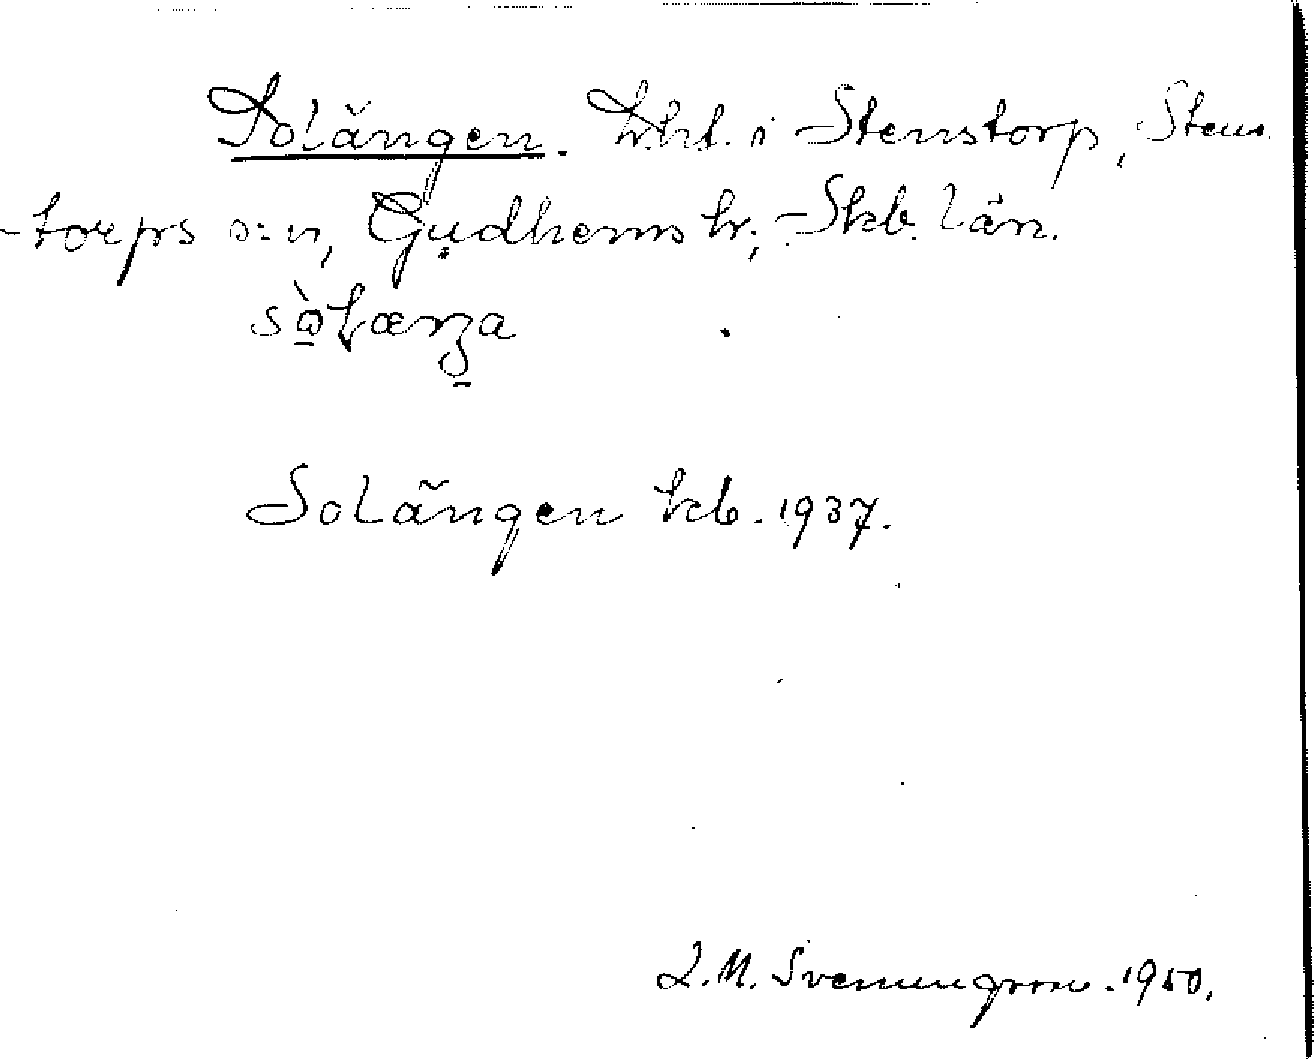 Solängen. Lht. i Stenstorp, Stens
-torps s:n, Gudhems hr; Skb. län.
Solängen kb. 1937.
L. M. Svennungsson. 1950.